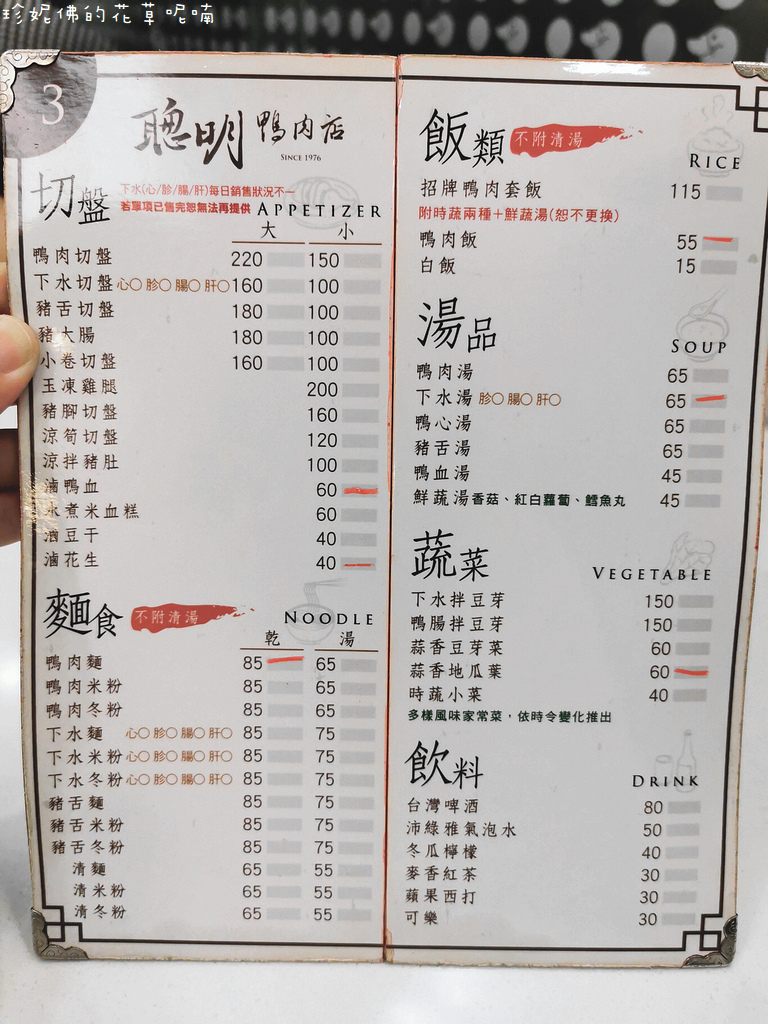 珍妮佛的花草呢喃
3
聰明鴨肉店
SINCE 1976
切盤
下水(心/胗/腸/肝)每日銷售狀況不一
若單項已售完恕無法再提供
APPETIZER
大 小
鴨肉切盤 220 150
下水切盤 心○ 胗○ 腸○ 肝○ 160 100
豬舌切盤 180 100
豬大腸 180 100
小卷切盤 160 100
玉凍雞腿 200
豬腳切盤 160
涼筍切盤 120
涼拌豬肚 100
滷鴨血 60
水煮米血糕 60
滷豆干 40
滷花生 40
麵食 不附清湯 NOODLE
乾 湯
鴨肉麵 85 65
鴨肉米粉 85 65
鴨肉冬粉 85 65
下水麵 心○ 胗○ 腸○ 肝○ 85 75
下水米粉 心○ 胗○ 腸○ 肝○ 85 75
下水冬粉 心○ 胗○ 腸○ 肝○ 85 75
豬舌麵 85 75
豬舌米粉 85 75
豬舌冬粉 85 75
清麵 65 55
清米粉 65 55
清冬粉 65 55
飯類 不附清湯 RICE
招牌鴨肉套飯 115
附時蔬兩種+鮮蔬湯(恕不更換)
鴨肉飯 55
白飯 15
湯品 SOUP
鴨肉湯 65
下水湯 胗○ 腸○ 肝○ 65
鴨心湯 65
豬舌湯 65
鴨血湯 45
鮮蔬湯 香菇、紅白蘿蔔、鱈魚丸 45
蔬菜 VEGETABLE
下水拌豆芽 150
鴨腸拌豆芽 150
蒜香豆芽菜 60
蒜香地瓜葉 60
時蔬小菜 40
多樣風味家常菜，依時令變化推出
飲料 DRINK
台灣啤酒 80
沛綠雅氣泡水 50
冬瓜檸檬 40
麥香紅茶 30
蘋果西打 30
可樂 30